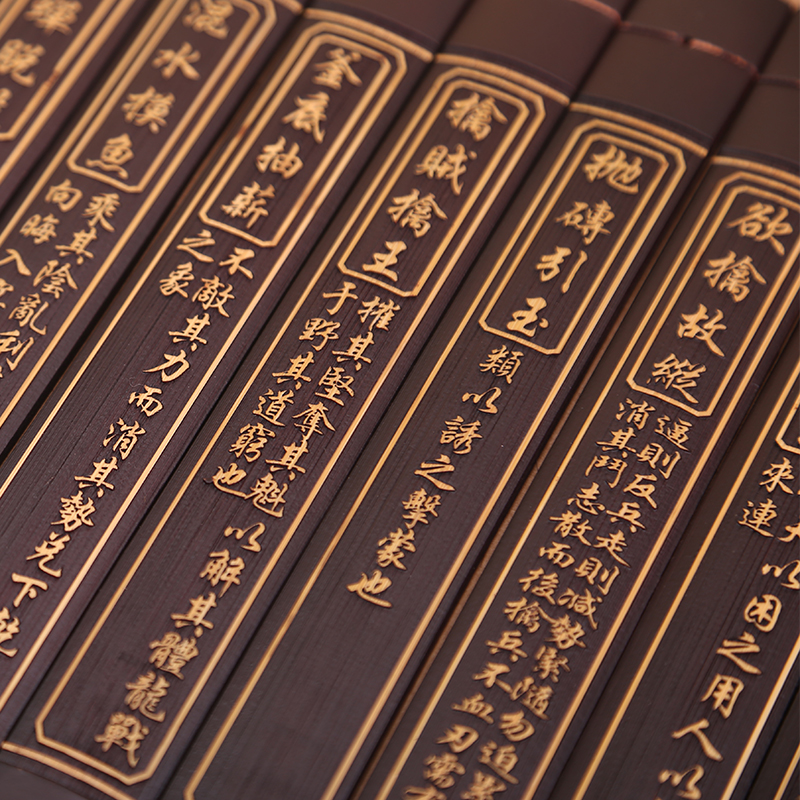 來連
以困之用人以
欲擒故縱
逼則反兵走則減勢緊隨勿迫累
消其鬥志散而後擒兵不血刃需
拋磚引玉
類以誘之擊蒙也
擒賊擒王
摧其堅奪其魁以解其體龍戰
于野其道窮也
釜底抽薪
不敵其力而消其勢兌下
之象
混水摸魚
乘其陰亂利
向晦入
蟬脱